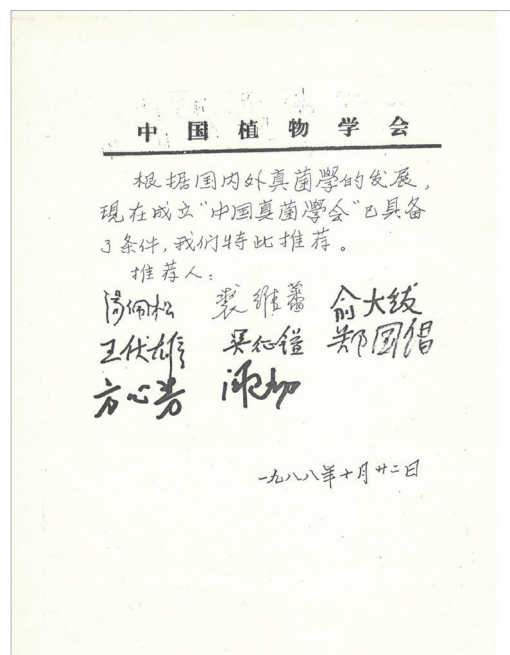 中国植物学会
根据国内外真菌學的发展，
現在成立“中国真菌學会”已具备
了条件，我们特此推荐。
推荐人：
汤佩松 裘维蕃 俞大绂
王伏雄 吴征镒 郑国锠
方心芳
一九八八年十月廿二日